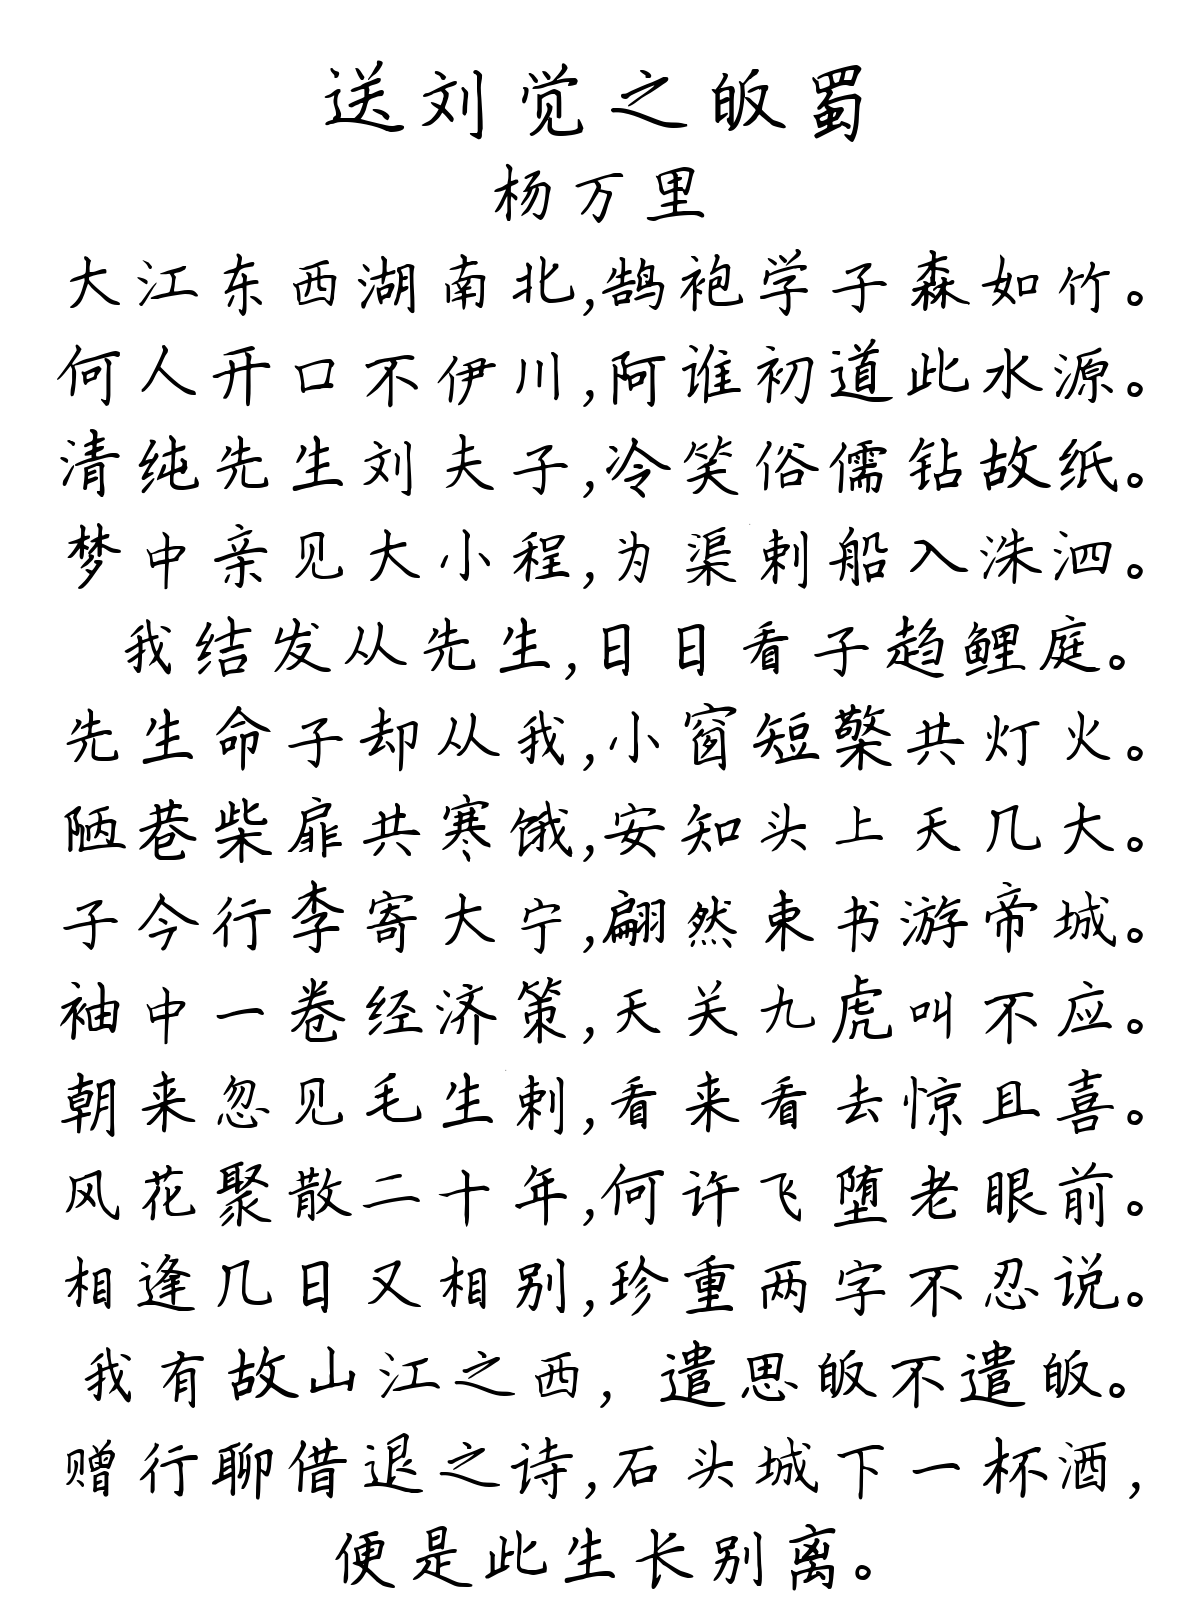 送刘觉之皈蜀
杨万里
大江东西湖南北,鹄袍学子森如竹。
何人开口不伊川,阿谁初道此水源。
清纯先生刘夫子,冷笑俗儒钻故纸。
梦中亲见大小程,为渠剌船入洙泗。
我结发从先生,日日看子趋鲤庭。
先生命子却从我,小窗短檠共灯火。
陋巷柴扉共寒饿,安知头上天几大。
子今行李寄大宁,翩然束书游帝城。
袖中一卷经济策,天关九虎叫不应。
朝来忽见毛生剌,看来看去惊且喜。
风花聚散二十年,何许飞堕老眼前。
相逢几日又相别,珍重两字不忍说。
我有故山江之西，遣思皈不遣皈。
赠行聊借退之诗,石头城下一杯酒,
便是此生长别离。